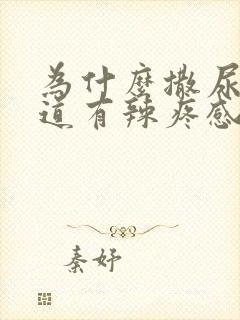 為什麼撒尿
道有辣疼感
秦妤